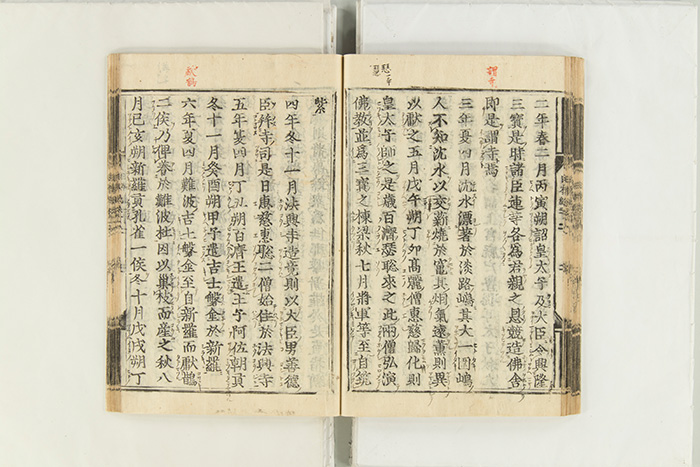 二年春二月丙寅朔詔皇太子及大臣令興隆
三寶是時諸臣連等各為君親之恩競造佛舎
即是謂寺焉
三年夏四月沈水漂著於淡路嶋其大一圍嶋
人不知沈水以交薪焼於竈其烟氣遠薫則異
以獻之五月戊午朔丁卯髙麗僧惠慈歸化則
皇太子師之是歳百濟僧惠聰來之此兩僧弘演
佛教並爲三寶之棟梁秋七月將軍等至自筑
紫
四年冬十一月法興寺造竟則以大臣男善德
臣拜寺司是日惠慈惠聰二僧始住於法興寺
五年夏四月丁丑朔百濟王遣王子阿佐朝貢
冬十一月癸酉朔甲子遣吉士磐金於新羅
六年夏四月難波吉士磐金至自新羅而獻鵲
二侯乃俾養於難波杜因以巢枝而産之秋八
月己亥朔新羅貢孔雀一侯冬十月戊戌朔丁